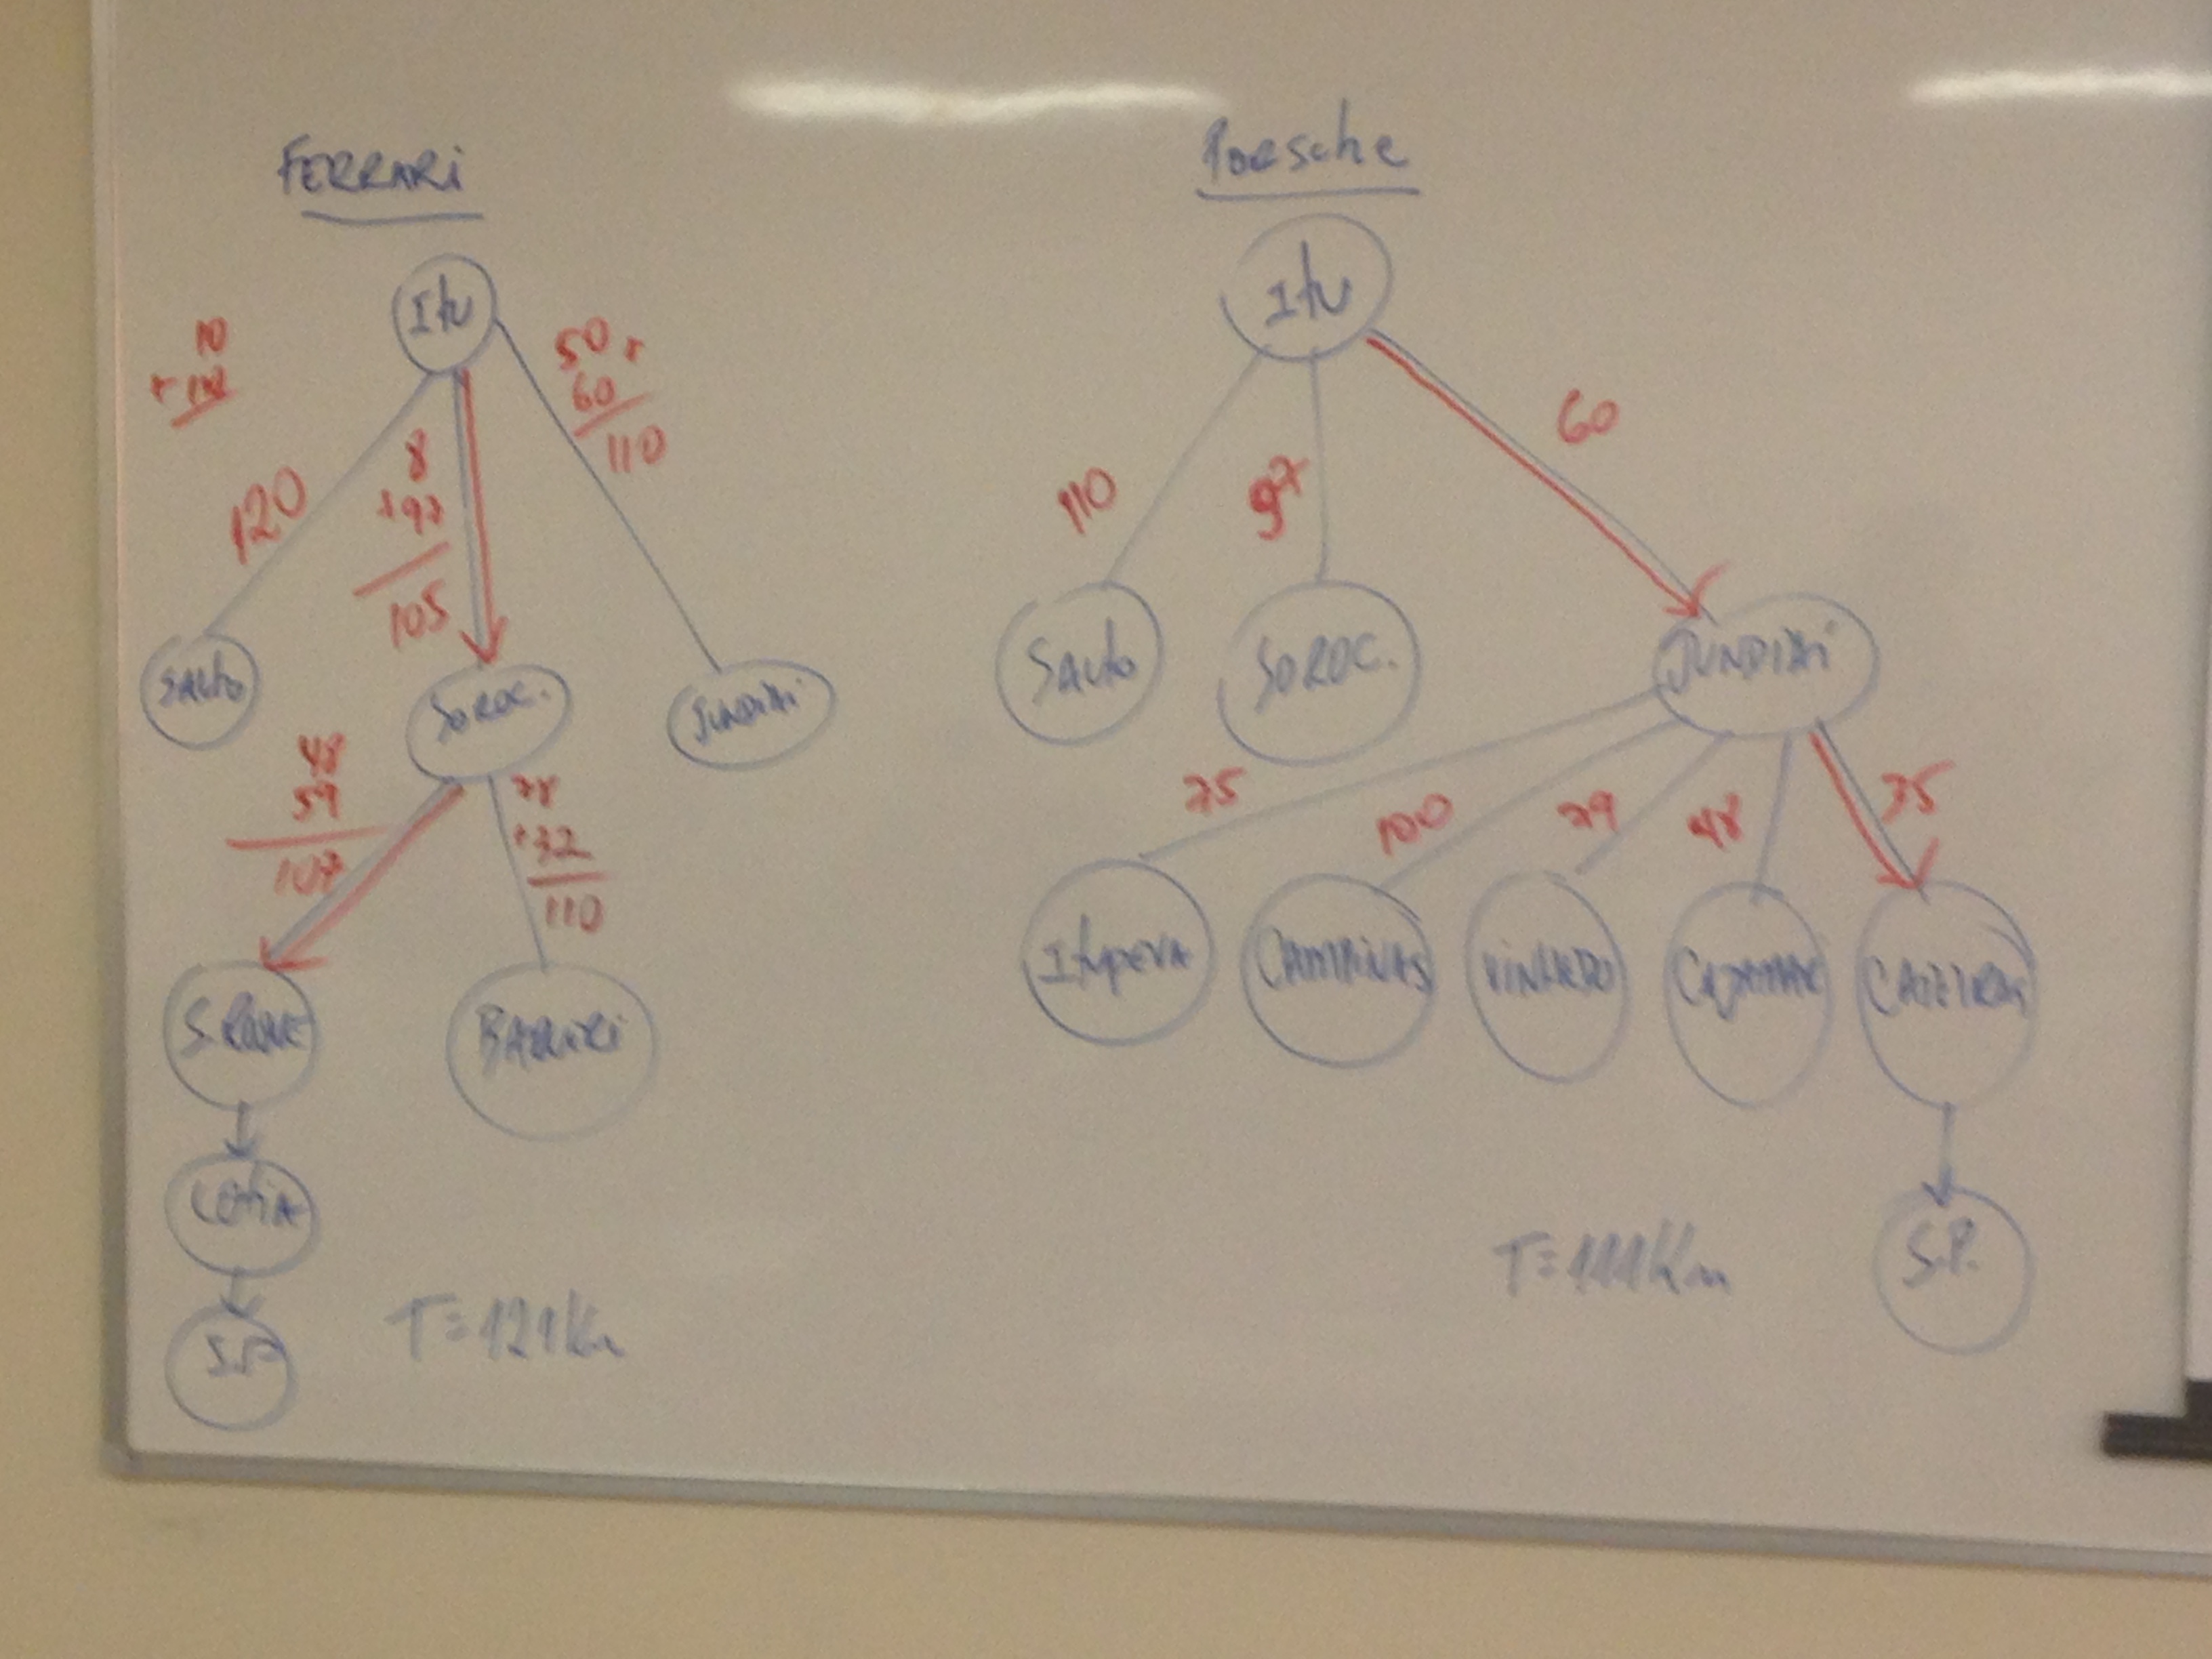 FERRARI
Itu
10
50 +
60
110
120
8
+97
105
SALTO
SOROC.
JUNDIAÍ
48
59
107
78
+32
110
S. ROQUE
BARUERI
COTIA
S.P.
T=121Km
Porsche
Itu
110
97
60
SALTO
SOROC.
JUNDIAÍ
75
100
79
48
35
ItupeVA
CAMPINAS
VINHEDO
CAJAMAR
CAIEIRAS
S.P.
T=111Km